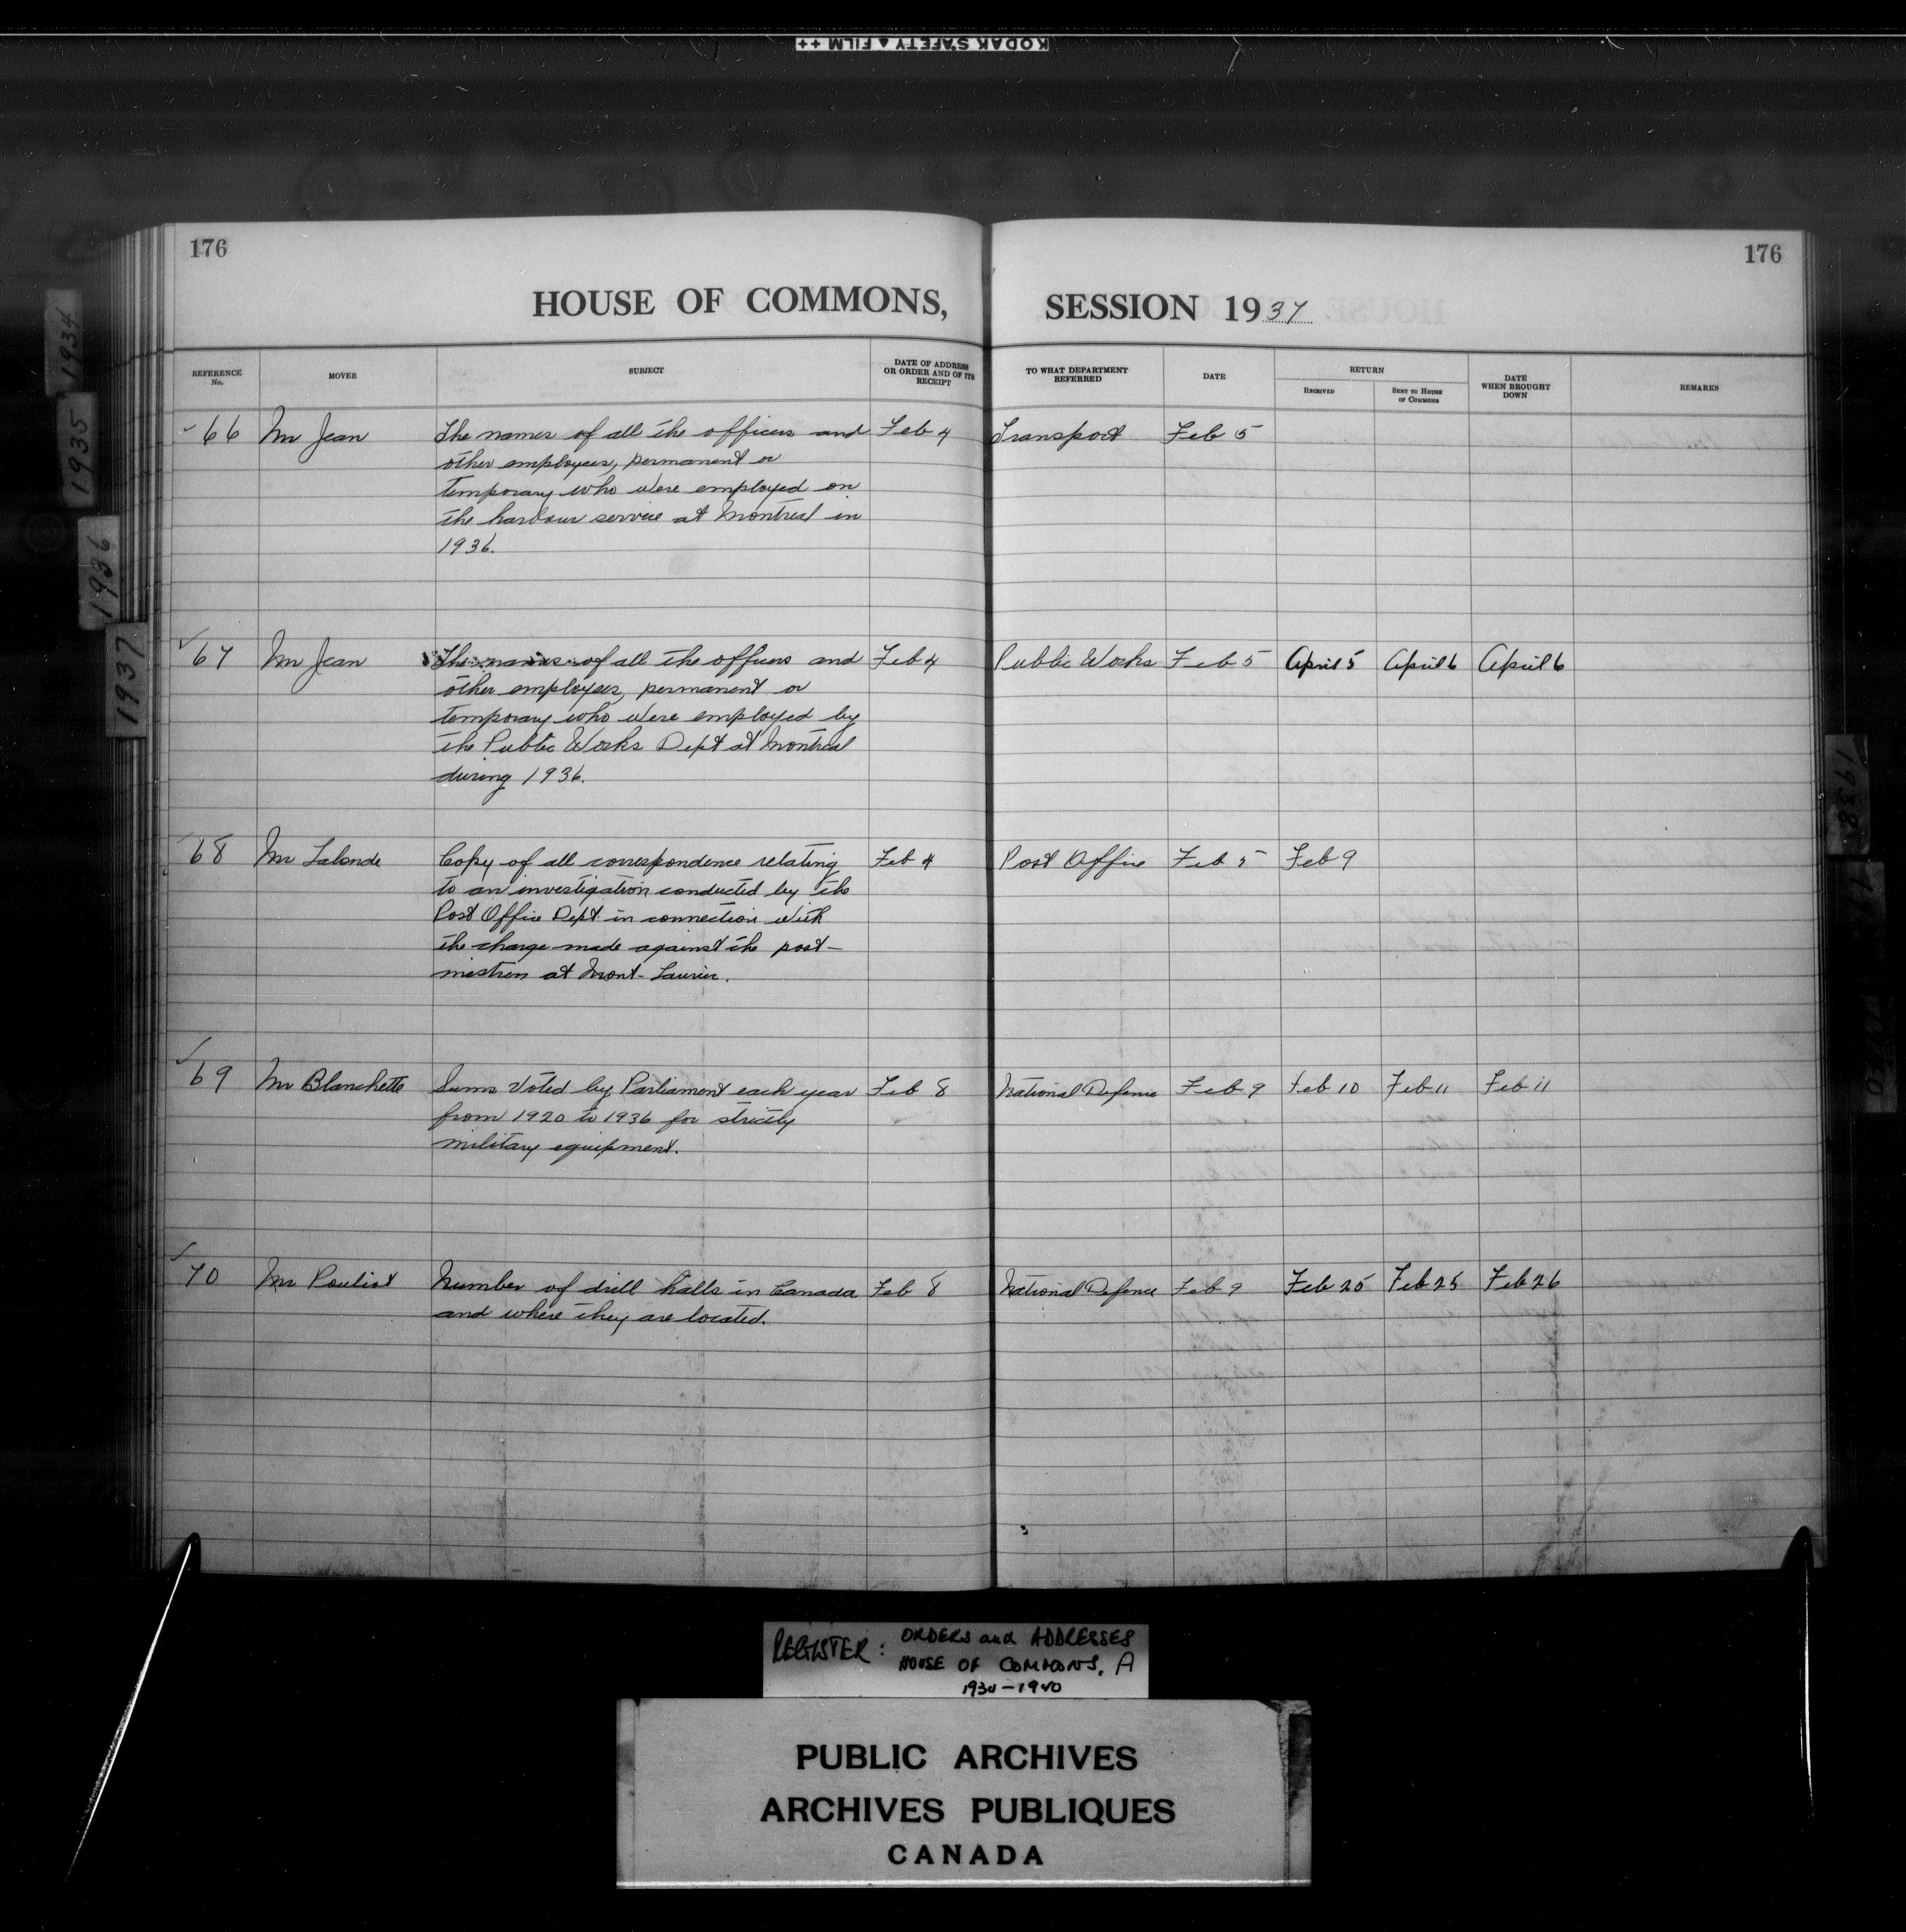 KODAK SAFETY ▲ FILM ++
176
176
HOUSE OF COMMONS, SESSION 1937
REFERENCE No.
MOVER
SUBJECT
DATE OF ADDRESS OR ORDER AND OF ITS RECEIPT
TO WHAT DEPARTMENT REFERRED
DATE
RETURN
RECEIVED
SENT TO HOUSE OF COMMONS
DATE WHEN BROUGHT DOWN
REMARKS
66 Mr Jean The names of all the officers and Feb 4 Transport Feb 5
other employees, permanent or
temporary who were employed on
the harbour service at Montreal in
1936.
67 Mr Jean The names of all the officers and Feb 4 Public Works Feb 5 April 5 April 6 April 6
other employees, permanent or
temporary who were employed by
the Public Works Dept at Montreal
during 1936.
68 Mr Lalonde Copy of all correspondence relating Feb 4 Post Office Feb 5 Feb 9
to an investigation conducted by the
Post Office Dept. in connection with
the charge made against the post-
mistress at Mont-Laurier.
69 Mr Blanchette Sums voted by Parliament each year Feb 8 National Defence Feb 9 Feb 10 Feb 11 Feb 11
from 1920 to 1936 for strictly
military equipment.
70 Mr Pouliot Number of drill halls in Canada Feb 8 National Defence Feb 9 Feb 25 Feb 25 Feb 26
and where they are located.
1934
1935
1936
1937
1938
REGISTER: ORDERS and ADDRESSES
HOUSE OF COMMONS, A
1934-1940
PUBLIC ARCHIVES
ARCHIVES PUBLIQUES
CANADA